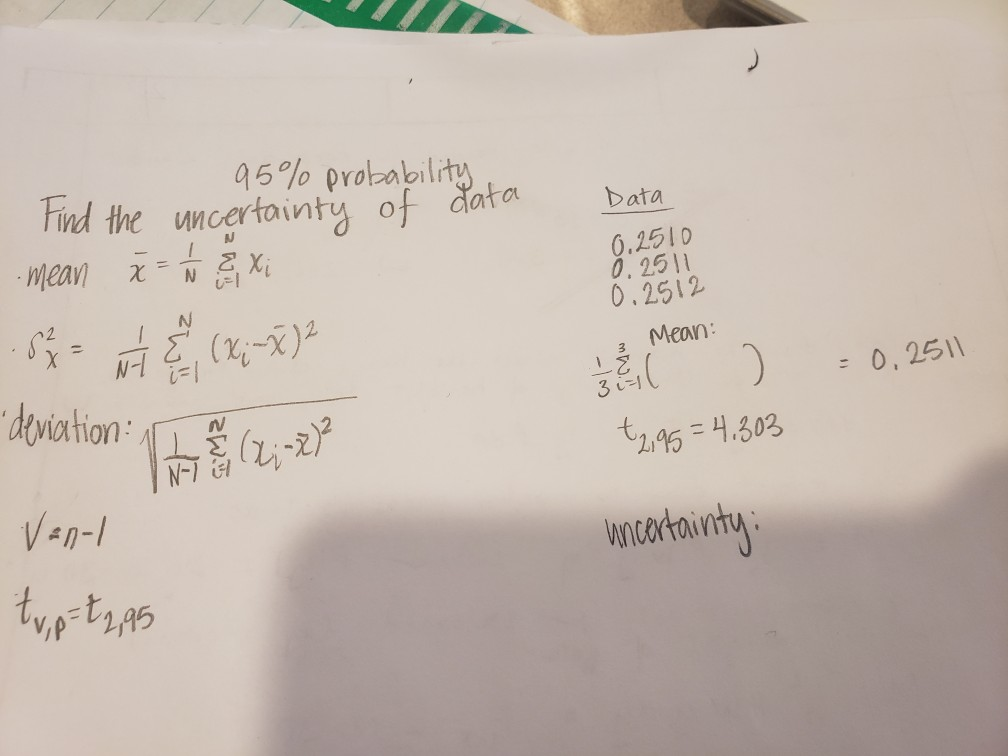 95% probability
Find the uncertainty of data
· mean x̄ = 1/N Σ_{i=1}^{N} x_i
· S_x^2 = 1/(N-1) Σ_{i=1}^{N} (x_i - x̄)^2
· deviation: √(1/(N-1) Σ_{i=1}^{N} (x_i - x̄)^2)
V = n-1
t_{v,p} = t_{2,95}
Data
0.2510
0.2511
0.2512
Mean:
1/3 Σ_{i=1}^{3} (      ) = 0.2511
t_{2,95} = 4.303
uncertainty: